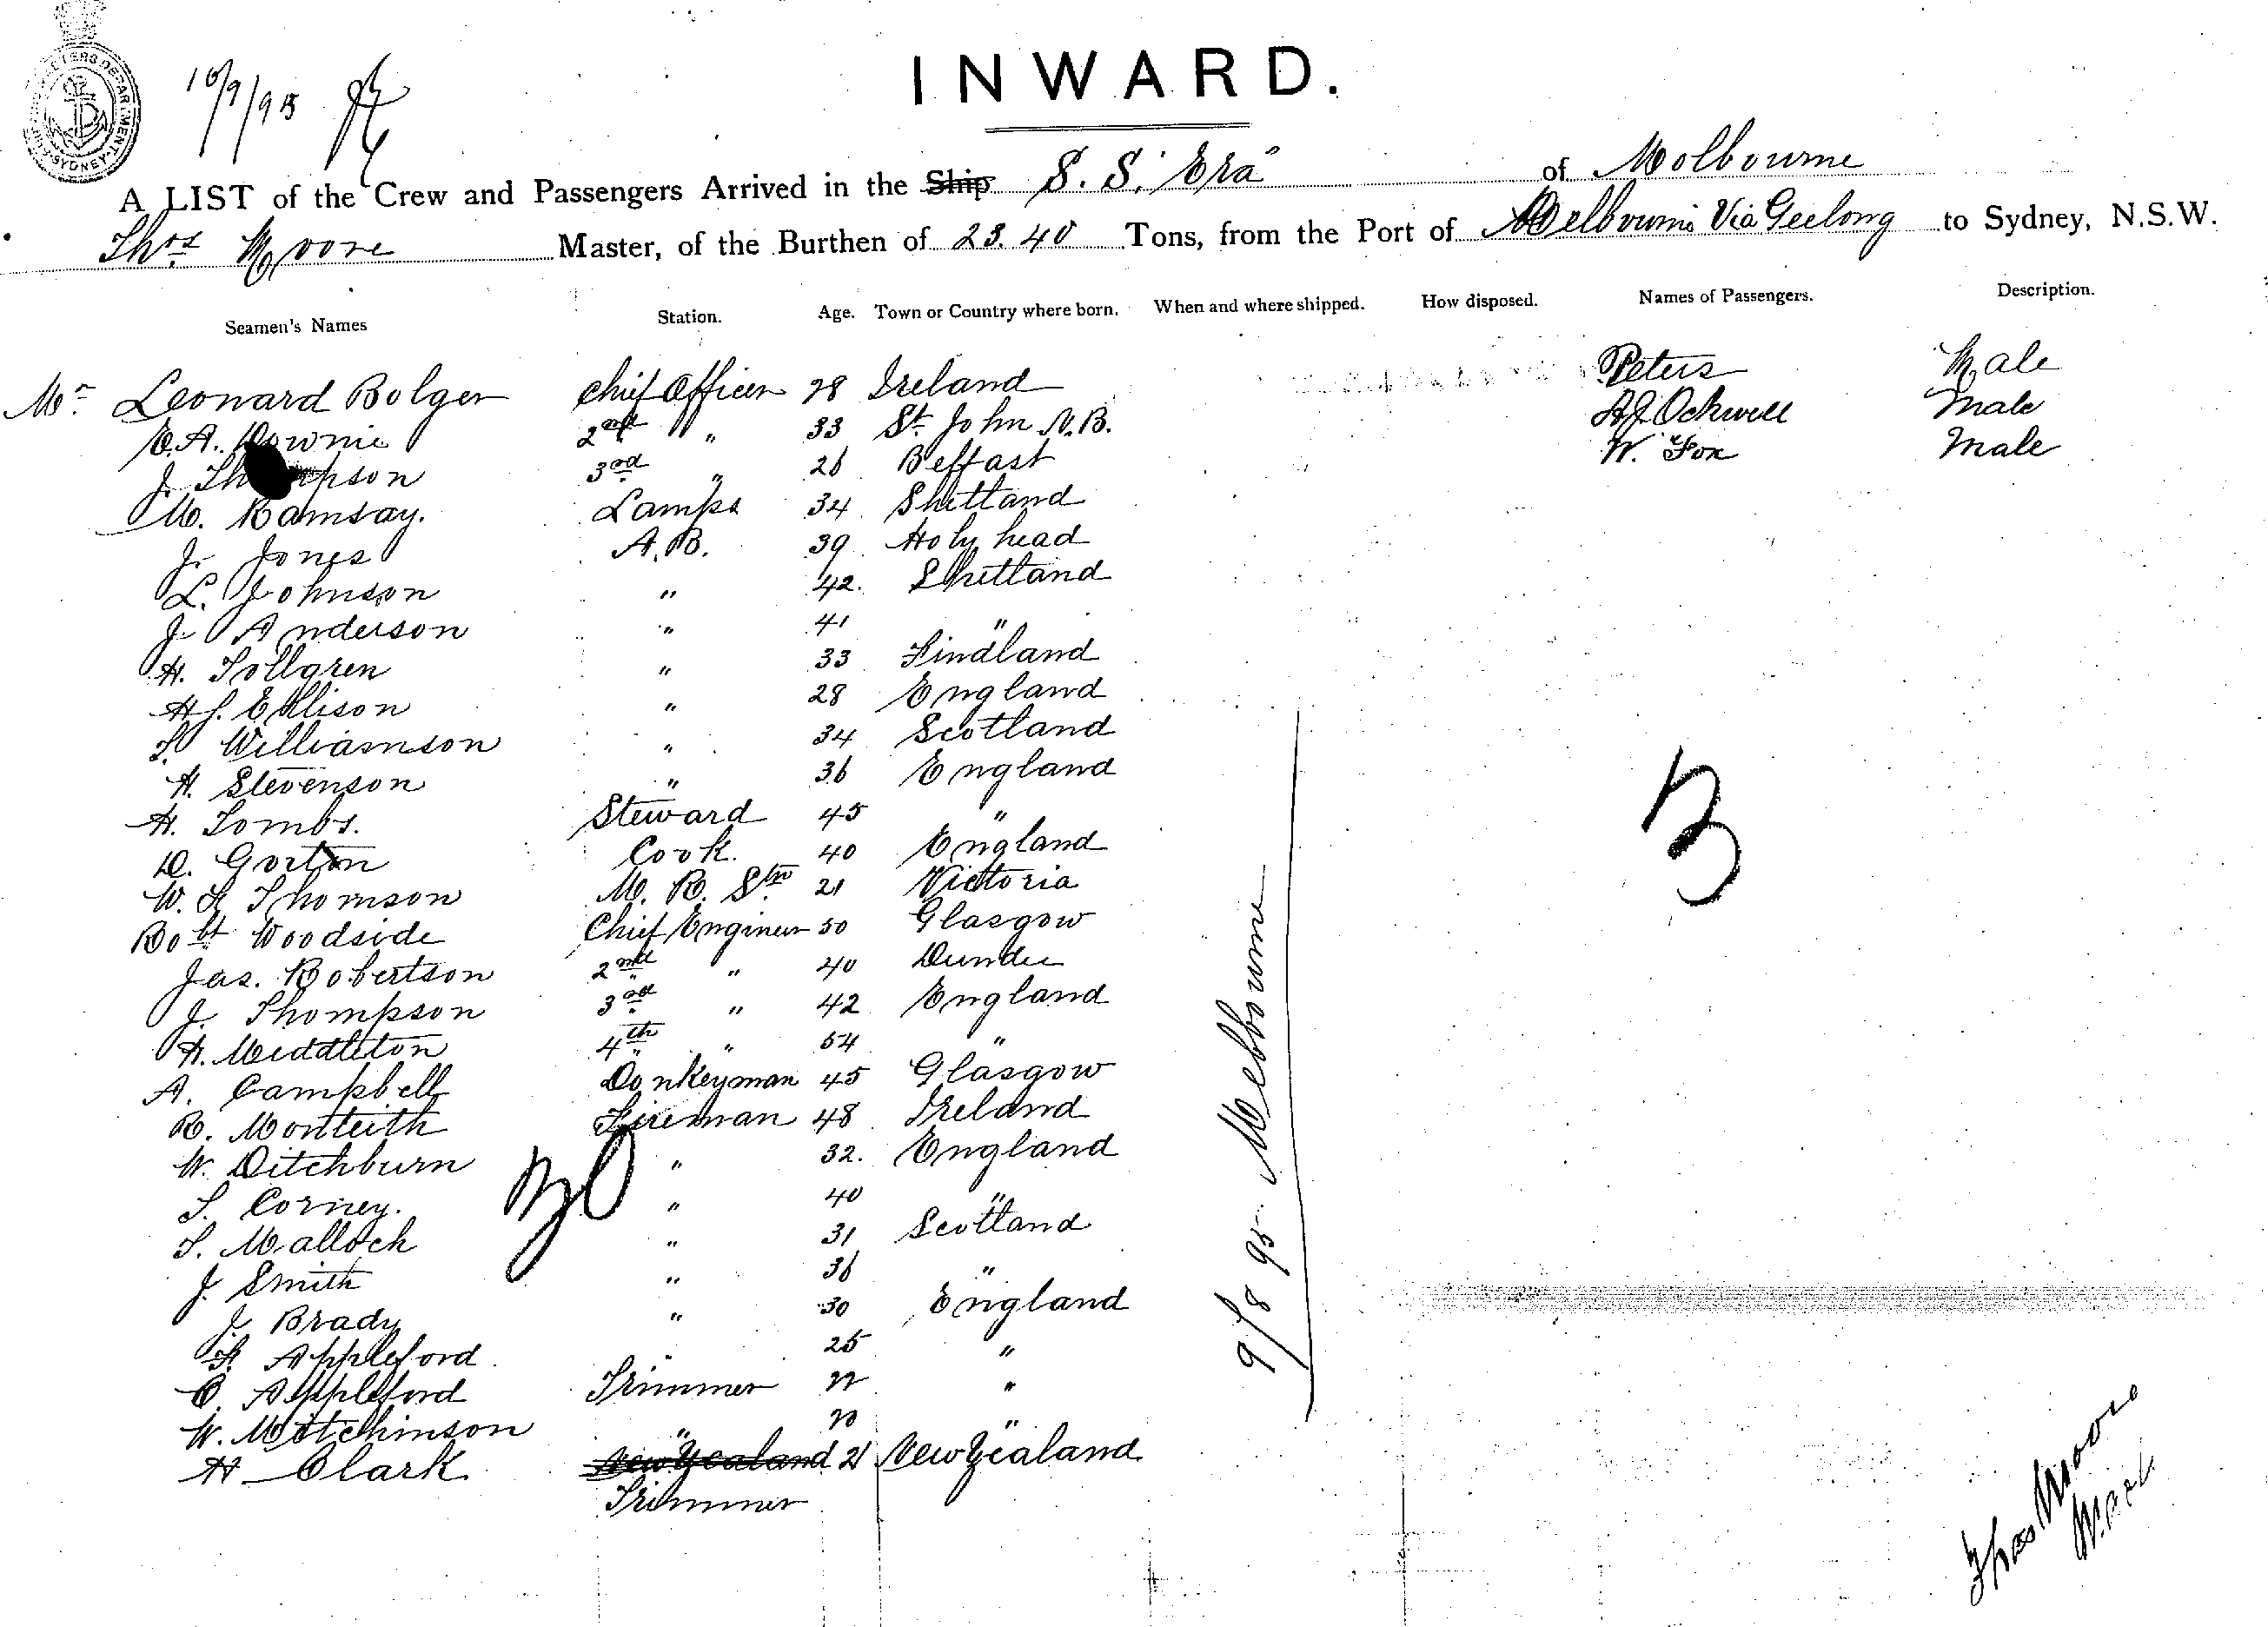 INWARD.
SHIPPING MASTERS DEPARTMENT SYDNEY
16/9/95
A LIST of the Crew and Passengers Arrived in the Ship S. S. "Era" of Melbourne
Thos Moore Master, of the Burthen of 23.40 Tons, from the Port of Melbourne Via Geelong to Sydney, N.S.W.
Seamen's Names Station. Age. Town or Country where born. When and where shipped. How disposed. Names of Passengers. Description.
Mr Leonard Bolger Chief Officer 28 Ireland Peters Male
E. A. Downie 2nd " 33 St John N.B. A J Ockwell Male
J. Thompson 3rd " 26 Belfast W. Fox Male
M. Ramsay. Lamps 34 Shetland
J. Jones A.B. 39 Holy head
L. Johnson " 42. Shetland
J Anderson " 41 "
H. Sollgren " 33 Findland
H J. Ellison " 28 England
L. Williamson " 34 Scotland
H. Stevenson " 36 England
H. Tombs. Steward 45 "
D. Gorton Cook. 40 England
W. H Thomson M. R. Stw 21 Victoria
Robt Woodside Chief Engineer 50 Glasgow
Jas. Robertson 2nd " 40 Dundee
J. Thompson 3rd " 42 England
H. Middleton 4th " 54 "
A. Campbell Donkeyman 45 Glasgow
R. Monteith Fireman 48 Ireland
W. Ditchburn " 32. England
T. Corney. " 40 "
T. Malloch " 31 Scotland
J. Smith " 36 "
J. Brady " 30 England
H. Appleford " 25 "
C. Appleford Trimmer 22 "
W. Mitchinson " 20 "
H Clark New Zealand 21 New Zealand
Trimmer
9/8 95 Melbourne
3
Thos Moore
Mast